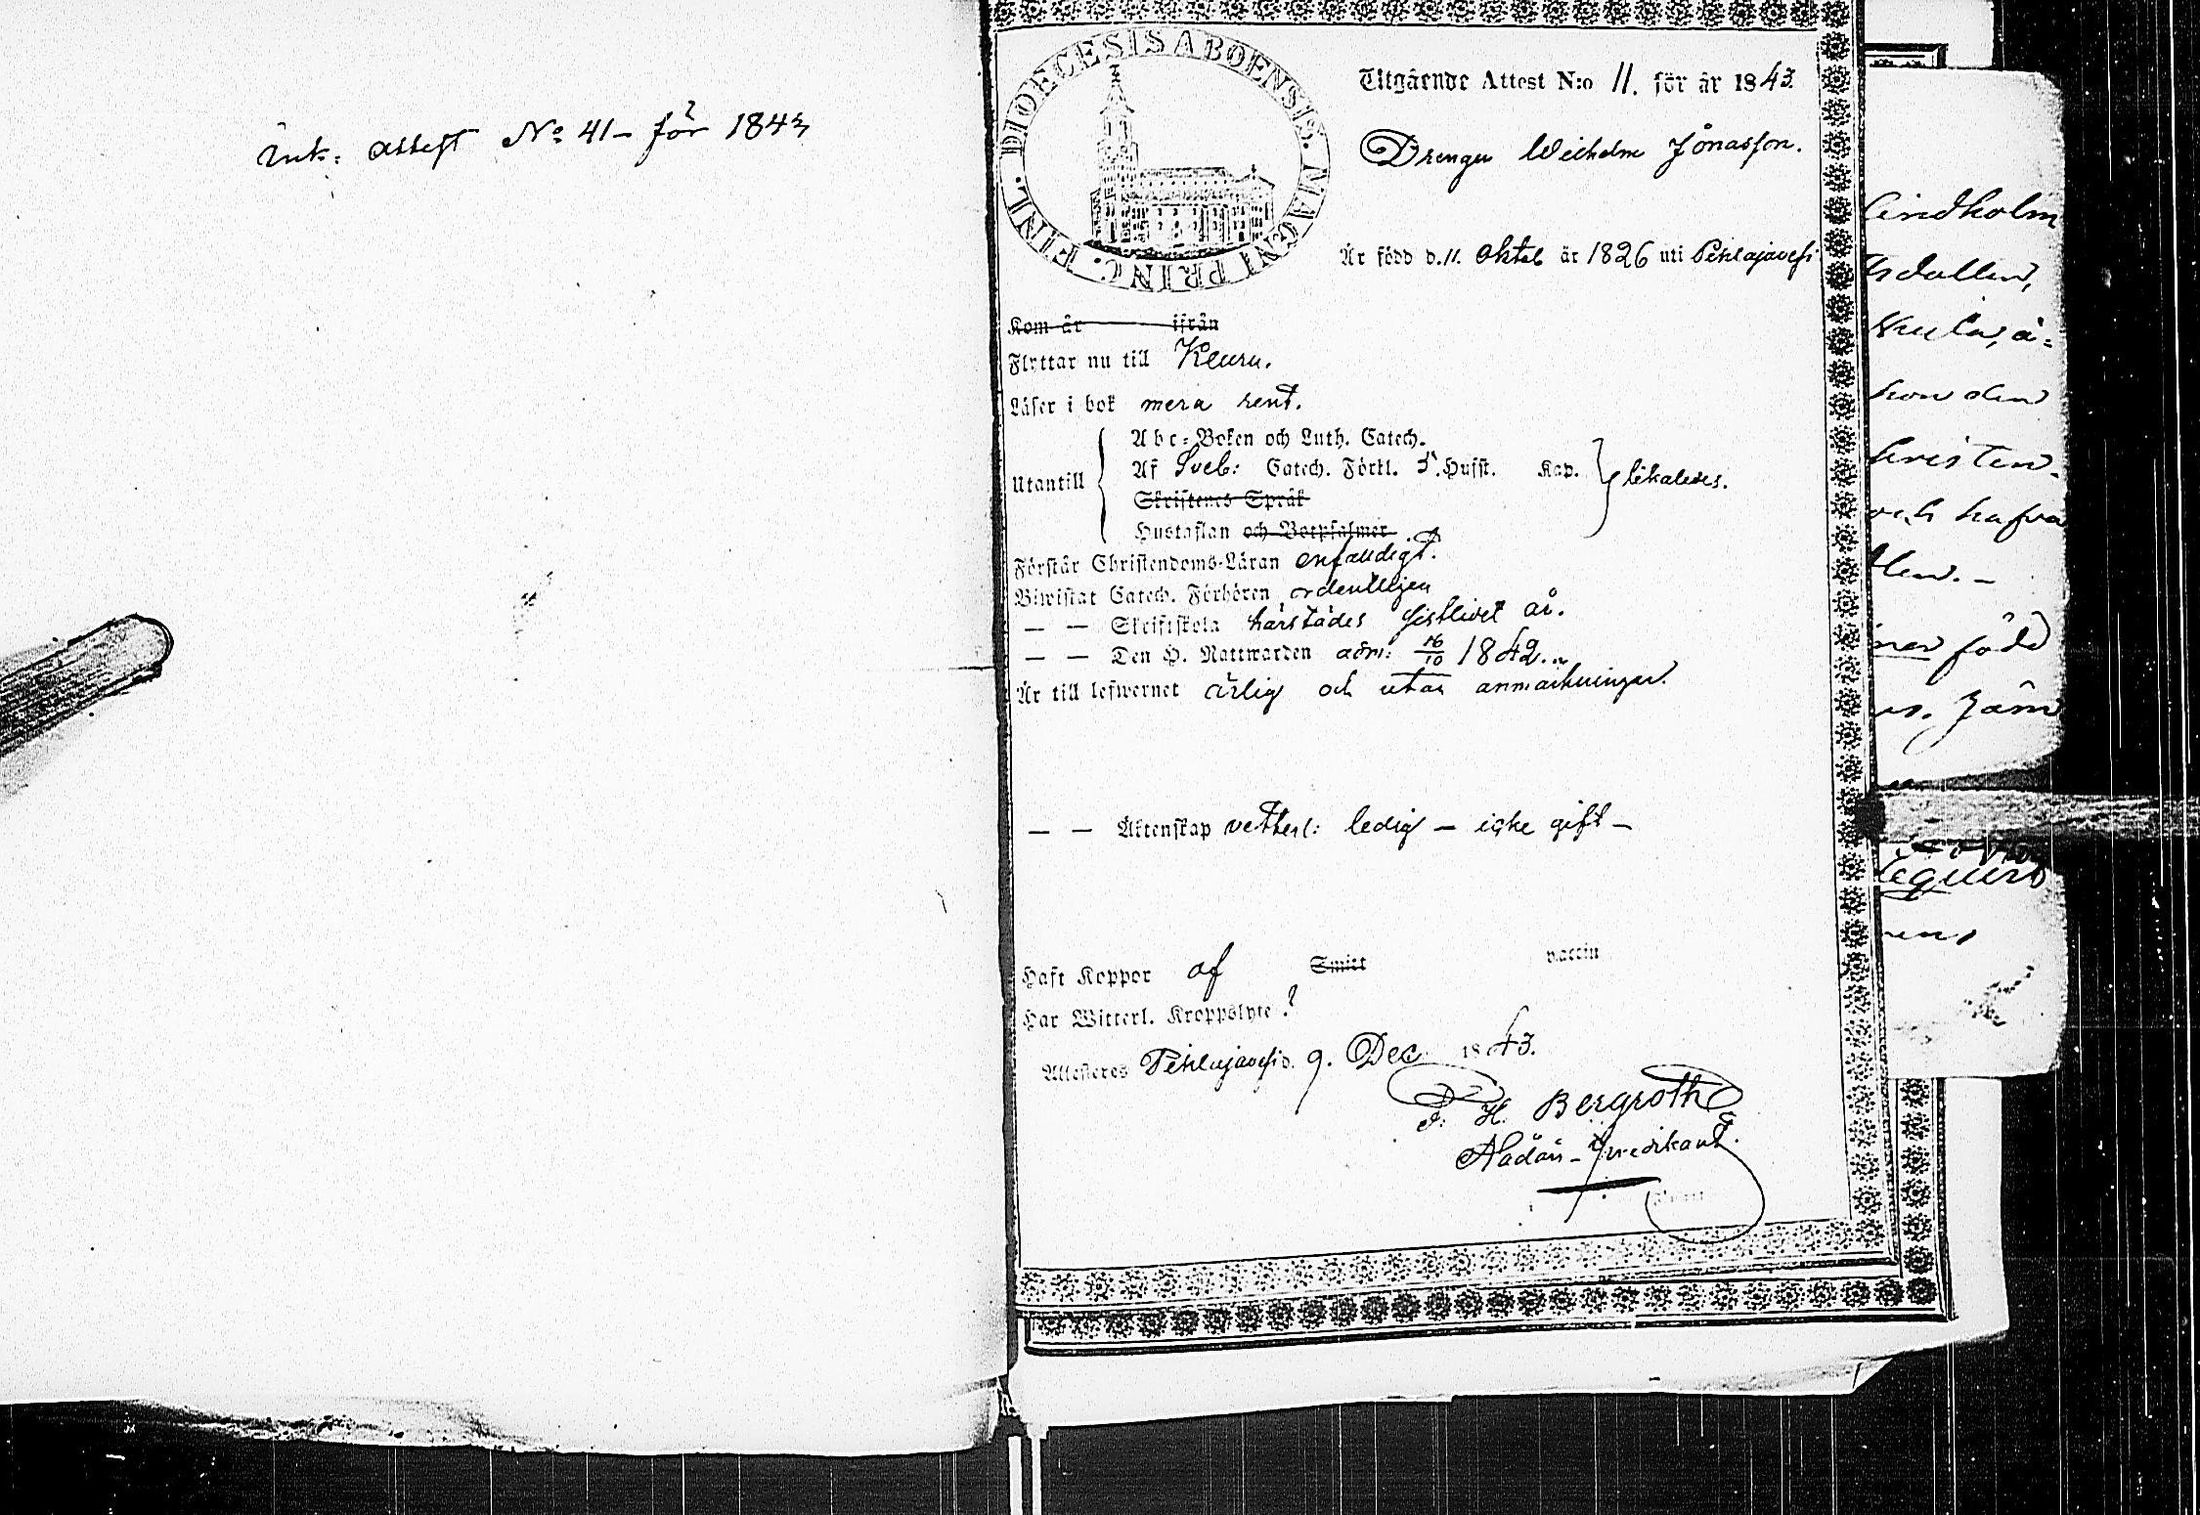 Ink: attest No 41 - för 1843
DIOECESIS ABOENSIS. MAGNI PRINC. FINL.
Utgående Attest N:o 11. för år 1843.
Drengen Wilhelm Jonasson.
Är född d. 11. Oktob år 1826 uti Pihlajavesi
Kom år ifrån
Flyttar nu till Keuru.
Läser i bok mera rent.
Abc-Boken och Luth. Catech.
Af Sveb: Catech. Förkl. 5. Hufst. Kap.
Utantill likaledes.
Skriftenes Språk
Hustaflan och Botpsalmer
Förstår Christendoms-Läran enfaldigt.
Biwistat Catech. Förhören ordentligen
— — Skriftskola härstädes sistlivet år.
— — Den H. Nattwarden adm: 16/10 1842.
Är till lefwernet ärlig och utan anmärkningar.
— — Äktenskap vetterl: ledig — icke gift —
Haft Koppor af Smitt vaccin
Har Witterl. Kroppslyte ?
Attesteres Pihlajavesi d. 9. Dec 1843.
H. Bergroth
Predikant.
Lindholm
kon den
christen-
och hafva
född